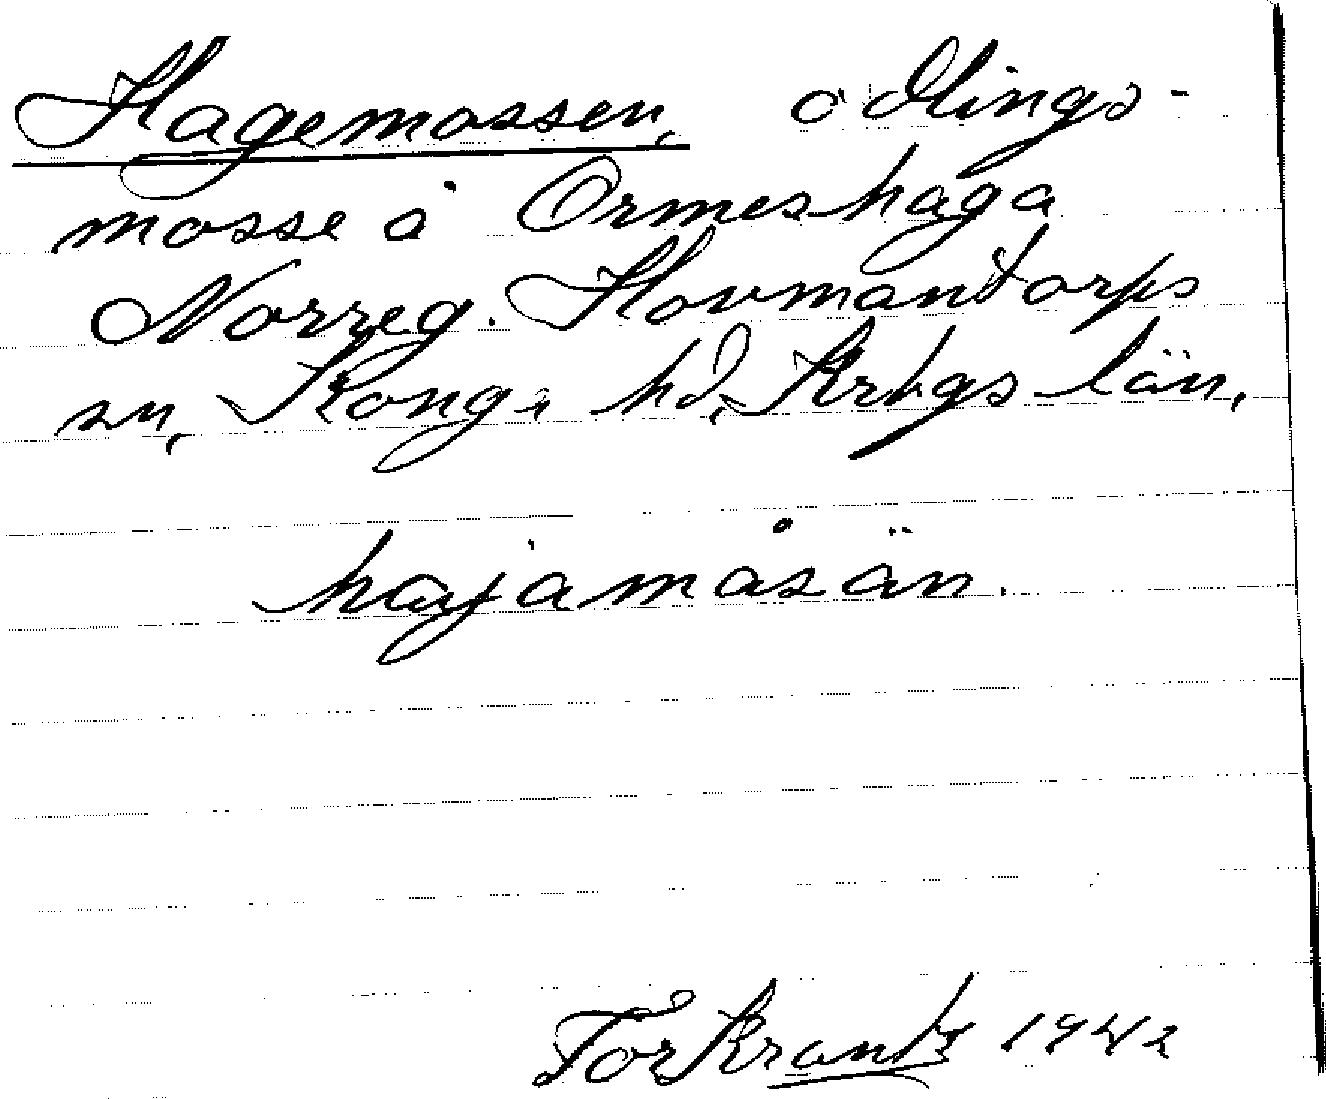 Hagemossen, odlings-
mosse å Ormeshaga
Norreg. Hovmantorps
sn, Konga hd, Krbgs län,
hajamåsän.
Tor Krantz 1942